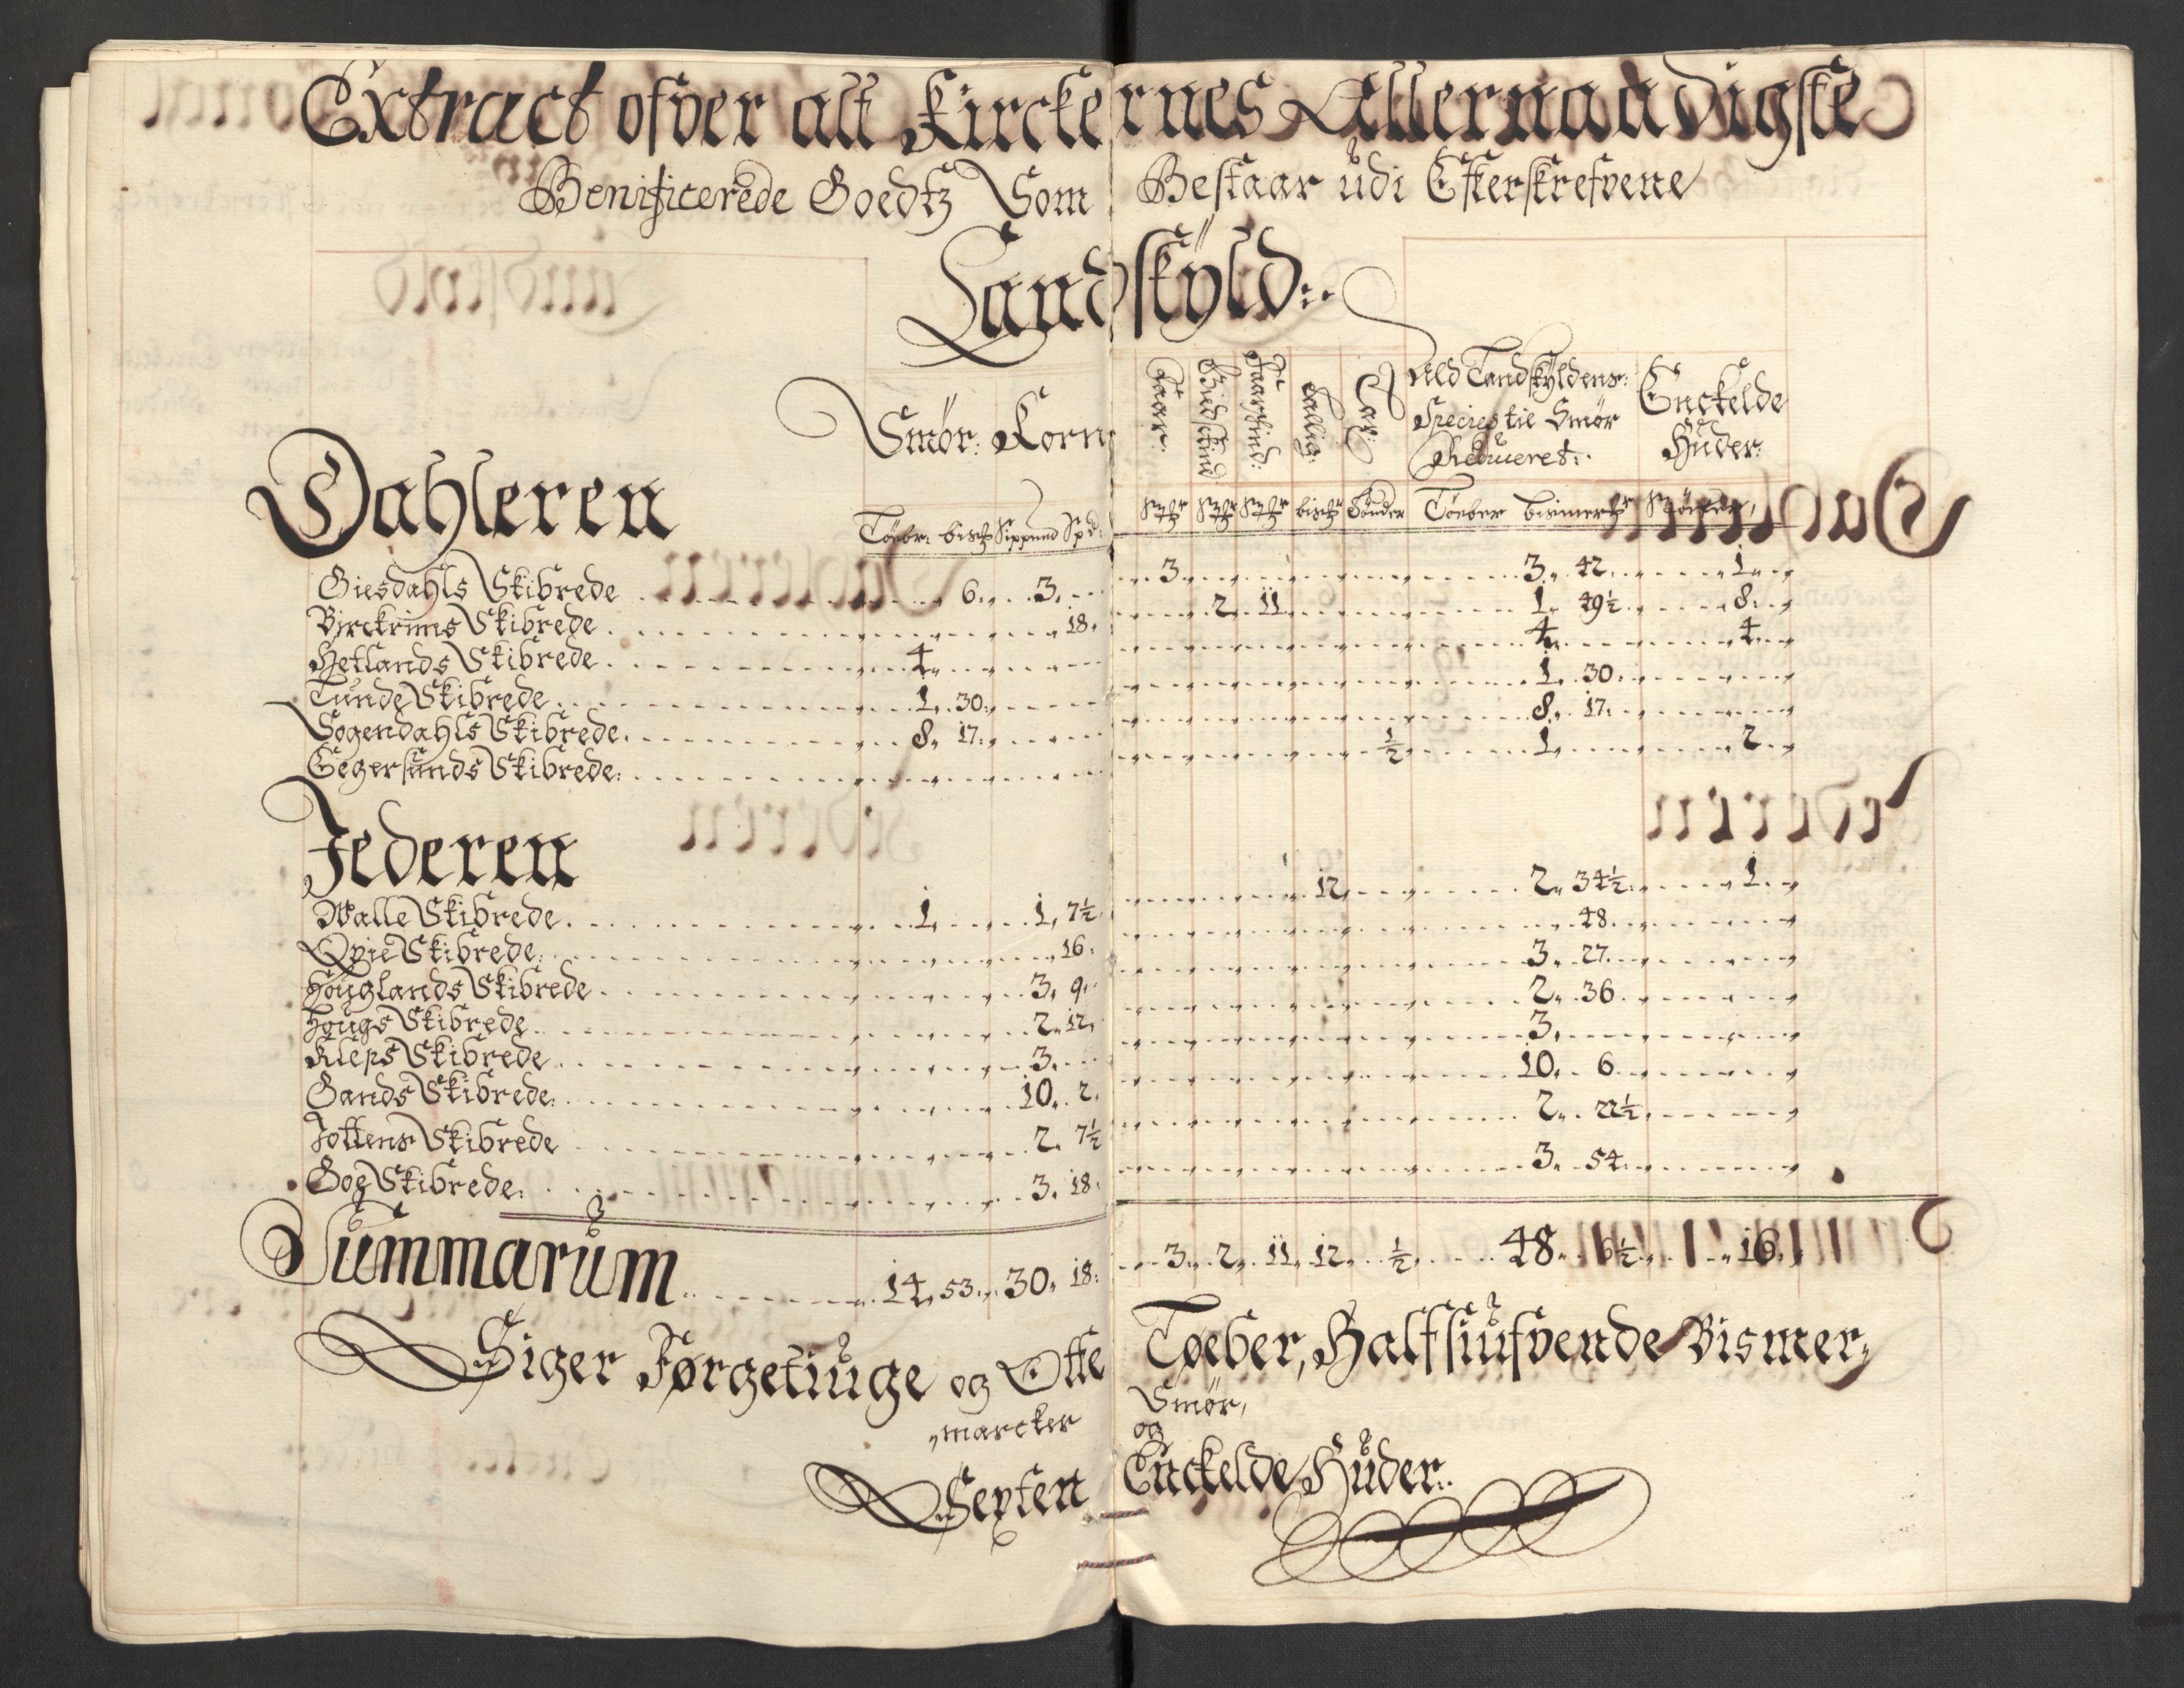 Extract ofver alt Kirckernes Allernaadigste
Benificerede Goedtz Som Bestaar udi Efterskrefvene
Landskÿld:
Smør: Korn Faar: Giedskind Faarskind: Tallig: Ald Landskÿldens: Species til Smør Reduceret: Enckelde Huder:
Dahleren
Tøebr: Sippund Spd: Tønder Tøeber
Giesdahls Skibrede 6. 3. 3. 3. 42. 1.
Birckrims Skibrede 18. 2. 11. 1. 49½ 8.
Hetlands Skibrede 4. 4. 4.
Lunde Skibrede 1. 30. 1. 30.
Sogendahls Skibrede 8. 17. 8. 17.
Egersunds Skibrede: ½ 1. 2.
Jederen
Walle Skibrede 1. 1. 7½ 12. 2. 34½ 1.
Qvie Skibrede 16. 48.
Høuglands Skibrede 3. 9. 3. 27.
Hougs Skibrede 2. 12. 2. 36.
Kleps Skibrede 3. 3.
Gands Skibrede 10. 2. 10. 6.
Jottens Skibrede 2. 7½ 2. 22½
Goe Skibrede 3. 18. 3. 54.
Summarum 14. 53. 30. 18. 3. 2. 11. 12. ½ 48. 6½ 16.
Siger Førgetiuge og Otte Tøeber, Halfsiufvende Bismer
marcker Smør,
og
Sexten Enckelde Huder: